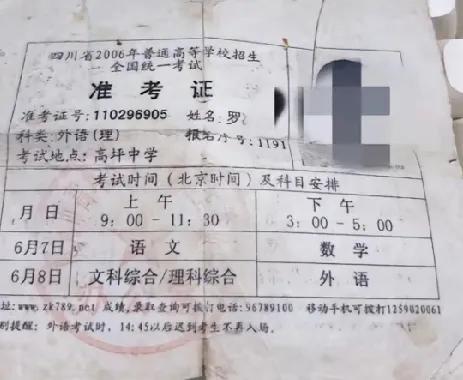 四川省2006年普通高等学校招生
全国统一考试
准考证
准考证号:110296905 姓名:罗
种类:外语(理) 报名序号:1191
考试地点:高坪中学
考试时间(北京时间)及科目安排
月日 上午 9:00-11:30 下午 3:00-5:00
6月7日 语文 数学
6月8日 文科综合/理科综合 外语
址:www.zk789.net 成绩,录取查询可拨打电话:96789100 移动手机可拨打1259020061
别提醒:外语考试时,14:45以后迟到考生不再入场。